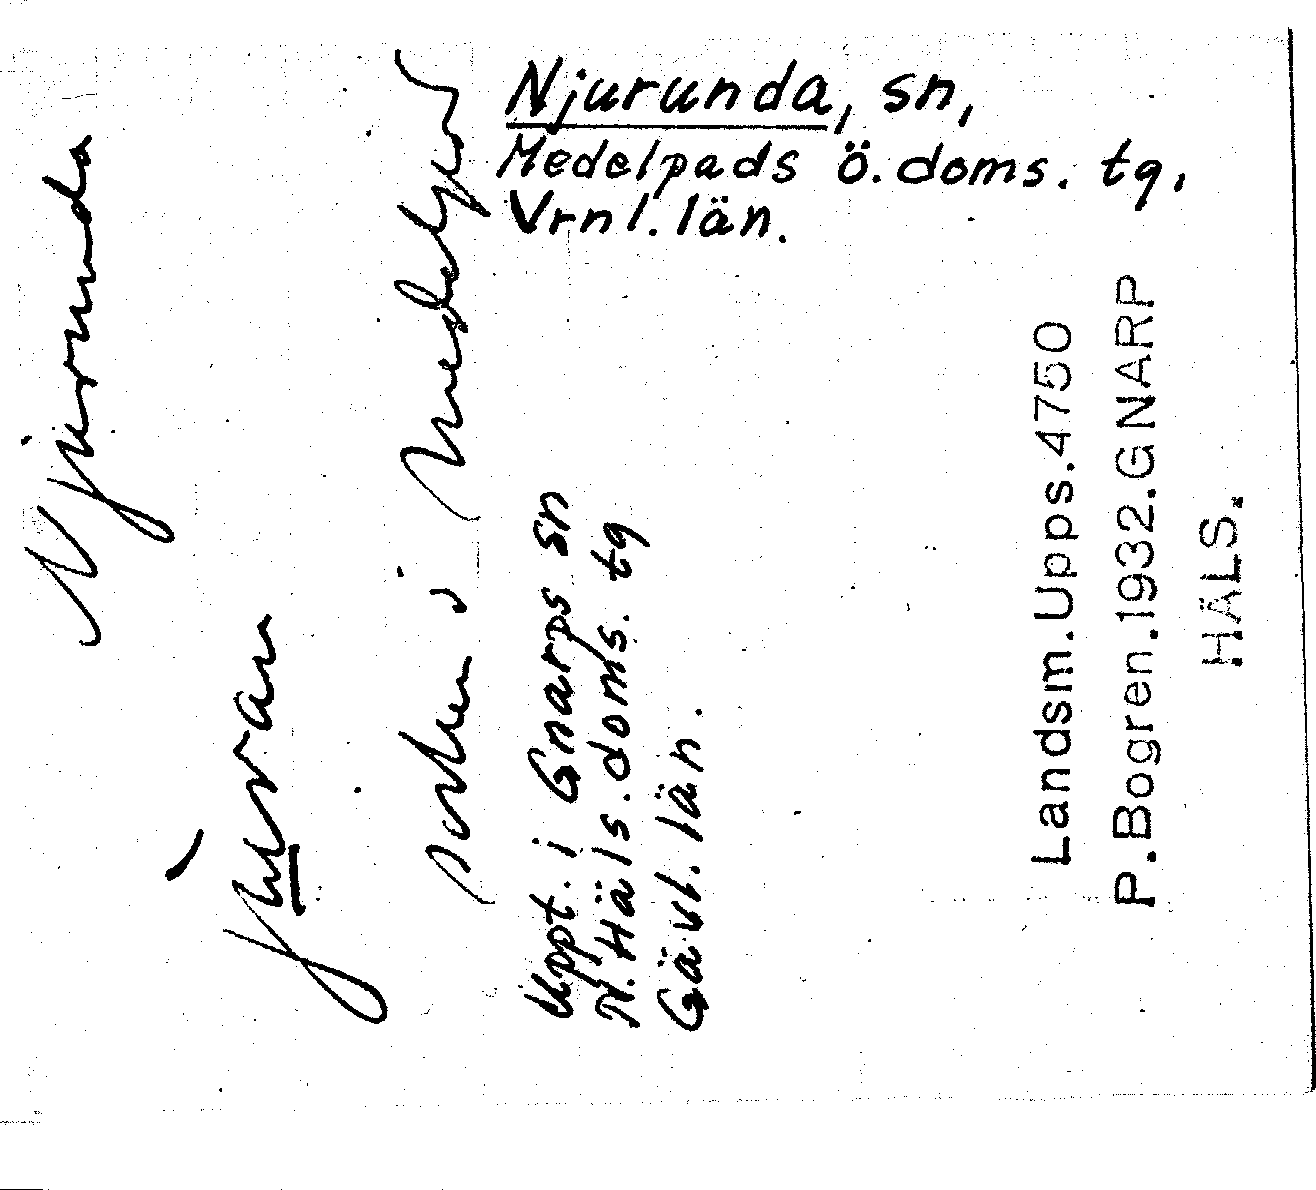 Njurunda, sn,
Medelpads ö. doms. tg,
Vrnl. län.
Njurunda
socken i Medelpad
Uppt. i Gnarps sn
N. Häls. doms. tg
Gävl. län.
Landsm.Upps.4750
P.Bogren.1932.GNARP
HÄLS.